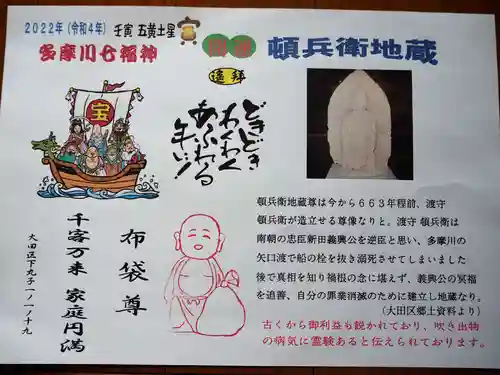 2022年(令和4年) 壬寅 五黄土星
多摩川七福神
開運
遥拝
頓兵衛地蔵
宝
どきどき
わくわく
あふれる
年い!
頓兵衛地蔵尊は今から663年程前、渡守
頓兵衛が造立せる尊像なりと。渡守 頓兵衛は
南朝の忠臣新田義興公を逆臣と思い、多摩川の
矢口渡で船の栓を抜き溺死させてしまいました
後で真相を知り禍根の念に堪えず、義興公の冥福
を追善、自分の罪業消滅のために建立し地蔵なり。
(大田区郷土資料より)
古くから御利益も説かれており、吹き出物
の病気に霊験あると伝えられております。
布袋尊
千客万来 家庭円満
大田区下丸子1ノ1ノ19